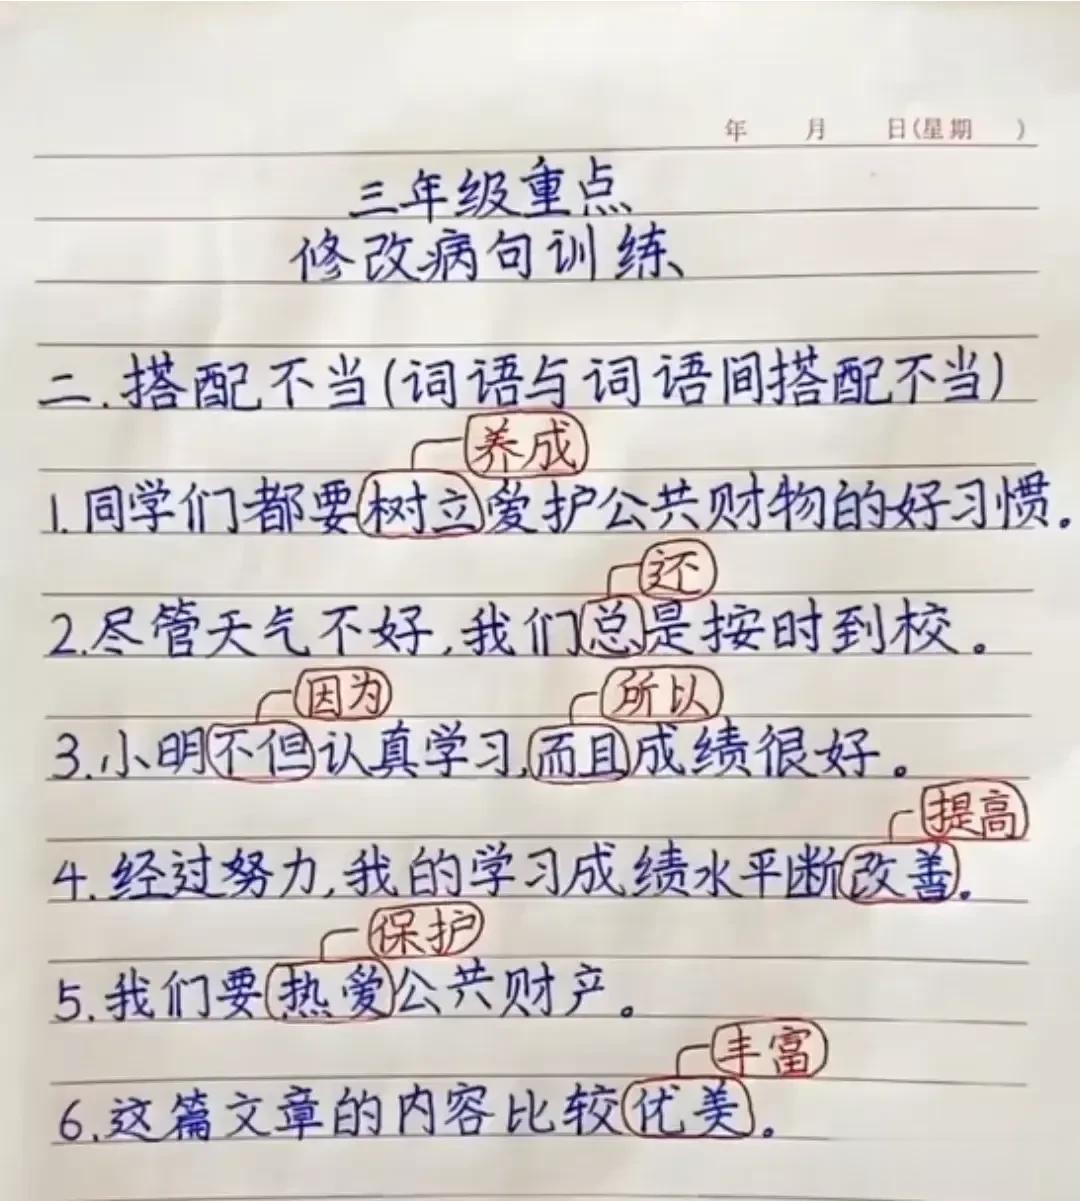 年 月 日(星期 )
三年级重点
修改病句训练
二.搭配不当(词语与词语间搭配不当)
养成
1.同学们都要树立爱护公共财物的好习惯。
还
2.尽管天气不好,我们总是按时到校。
因为 所以
3.小明不但认真学习,而且成绩很好。
提高
4.经过努力,我的学习成绩水平断改善。
保护
5.我们要热爱公共财产。
丰富
6.这篇文章的内容比较优美。